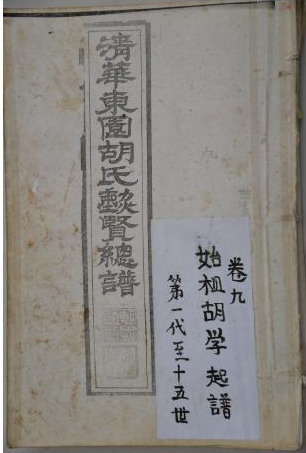 清華東園胡氏勲賢總譜
卷九
始祖胡学起譜
第一代至十五世